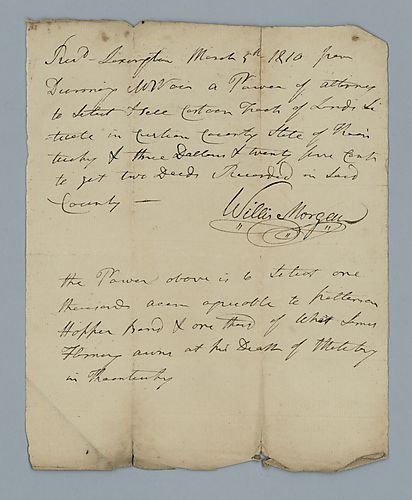 Recd Lexington March 5th 1810 from
Dunning McNair a Power of attorney
to Select & sell Certain Tracts of Lands Si
tuate in County State of Ken
tucky & three Dollars & twenty five Cents
to get two Deeds Recorded in Said
County —
Willis Morgan
the Power above is to Select one
thousands acers agreable to
Hopper Bond & one third of What James
Flemmg owns at his Death of
in